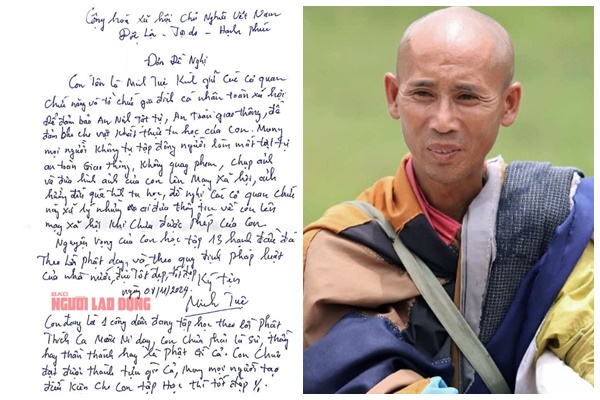 Cộng hoà xã hội Chủ Nghĩa Việt Nam
Độc Lập - Tự do - Hạnh phúc
Đơn Đề Nghị
Con tên là Minh Tuệ Kính gửi Các cơ quan
chức năng và tổ chức gia đình cá nhân toàn xã hội
để đảm bảo An Ninh Tật tự, An Toàn giao thông, để
đảm bảo cho việc thực tu học của con. Mong
mọi người Không tụ tập đông người làm mất trật tự
an toàn Giao thông, Không quay phim, chụp ảnh
và đưa hình ảnh của con lên Mạng Xã hội, ảnh
hưởng đến quá trình tu học, đề nghị Các cơ quan chức
năng xử lý những ai đưa thông tin về con lên
mạng xã hội Khi Chưa được phép Của Con
Nguyện vọng của Con học tập 13 hạnh đầu đà
Theo Lời phật dạy, và theo quy định pháp luật
của nhà nước, đời tốt đẹp
Ký tên
ngày 08/11/2024
BÁO
NGƯỜI LAO ĐỘNG
Minh Tuệ
Con đang là 1 công dân đang tập học theo lời phật
Thích Ca Mâu Ni dạy, Con Chưa phải là Sư, thầy
hay thần thánh hay là Phật gì Cả. Con Chưa
đạt được thành tựu gì Cả, mong mọi người tạo
điều kiện cho Con tập Học thì tốt đẹp